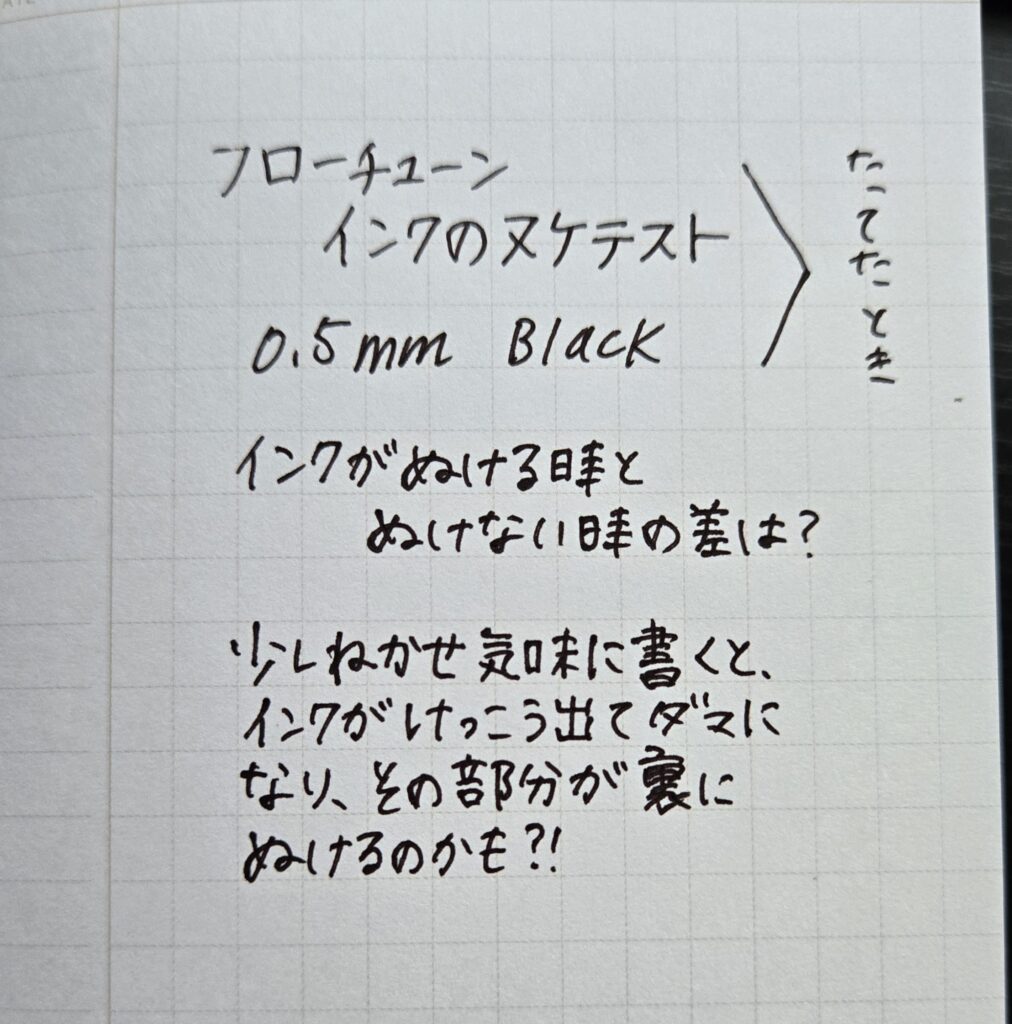 フローチューン
インクのヌケテスト
0.5mm Black
たてたとき
インクがぬける時と
ぬけない時の差は?
少しねかせ気味に書くと、
インクがけっこう出てダマに
なり、その部分が裏に
ぬけるのかも?!